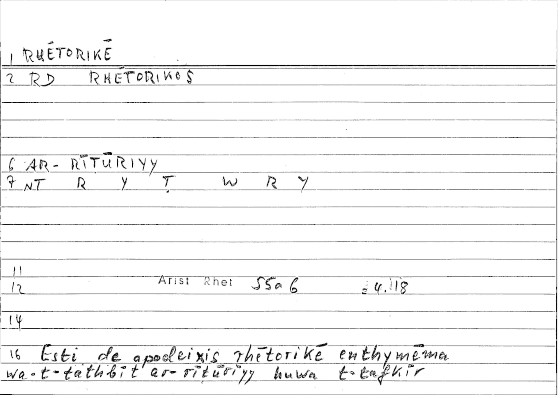 1 RHĒTORIKĒ
2 RD RHĒTORIKOS
6 AR-RĪṬŪRIYY
7 NT R Y Ṭ W R Y
11
12 Arist Rhet 55a6 = 4.18
14
16 Esti de apodeixis rhētorikē enthymēma
wa-t-tathbīt ar-rīṭūriyy huwa t-tafkīr